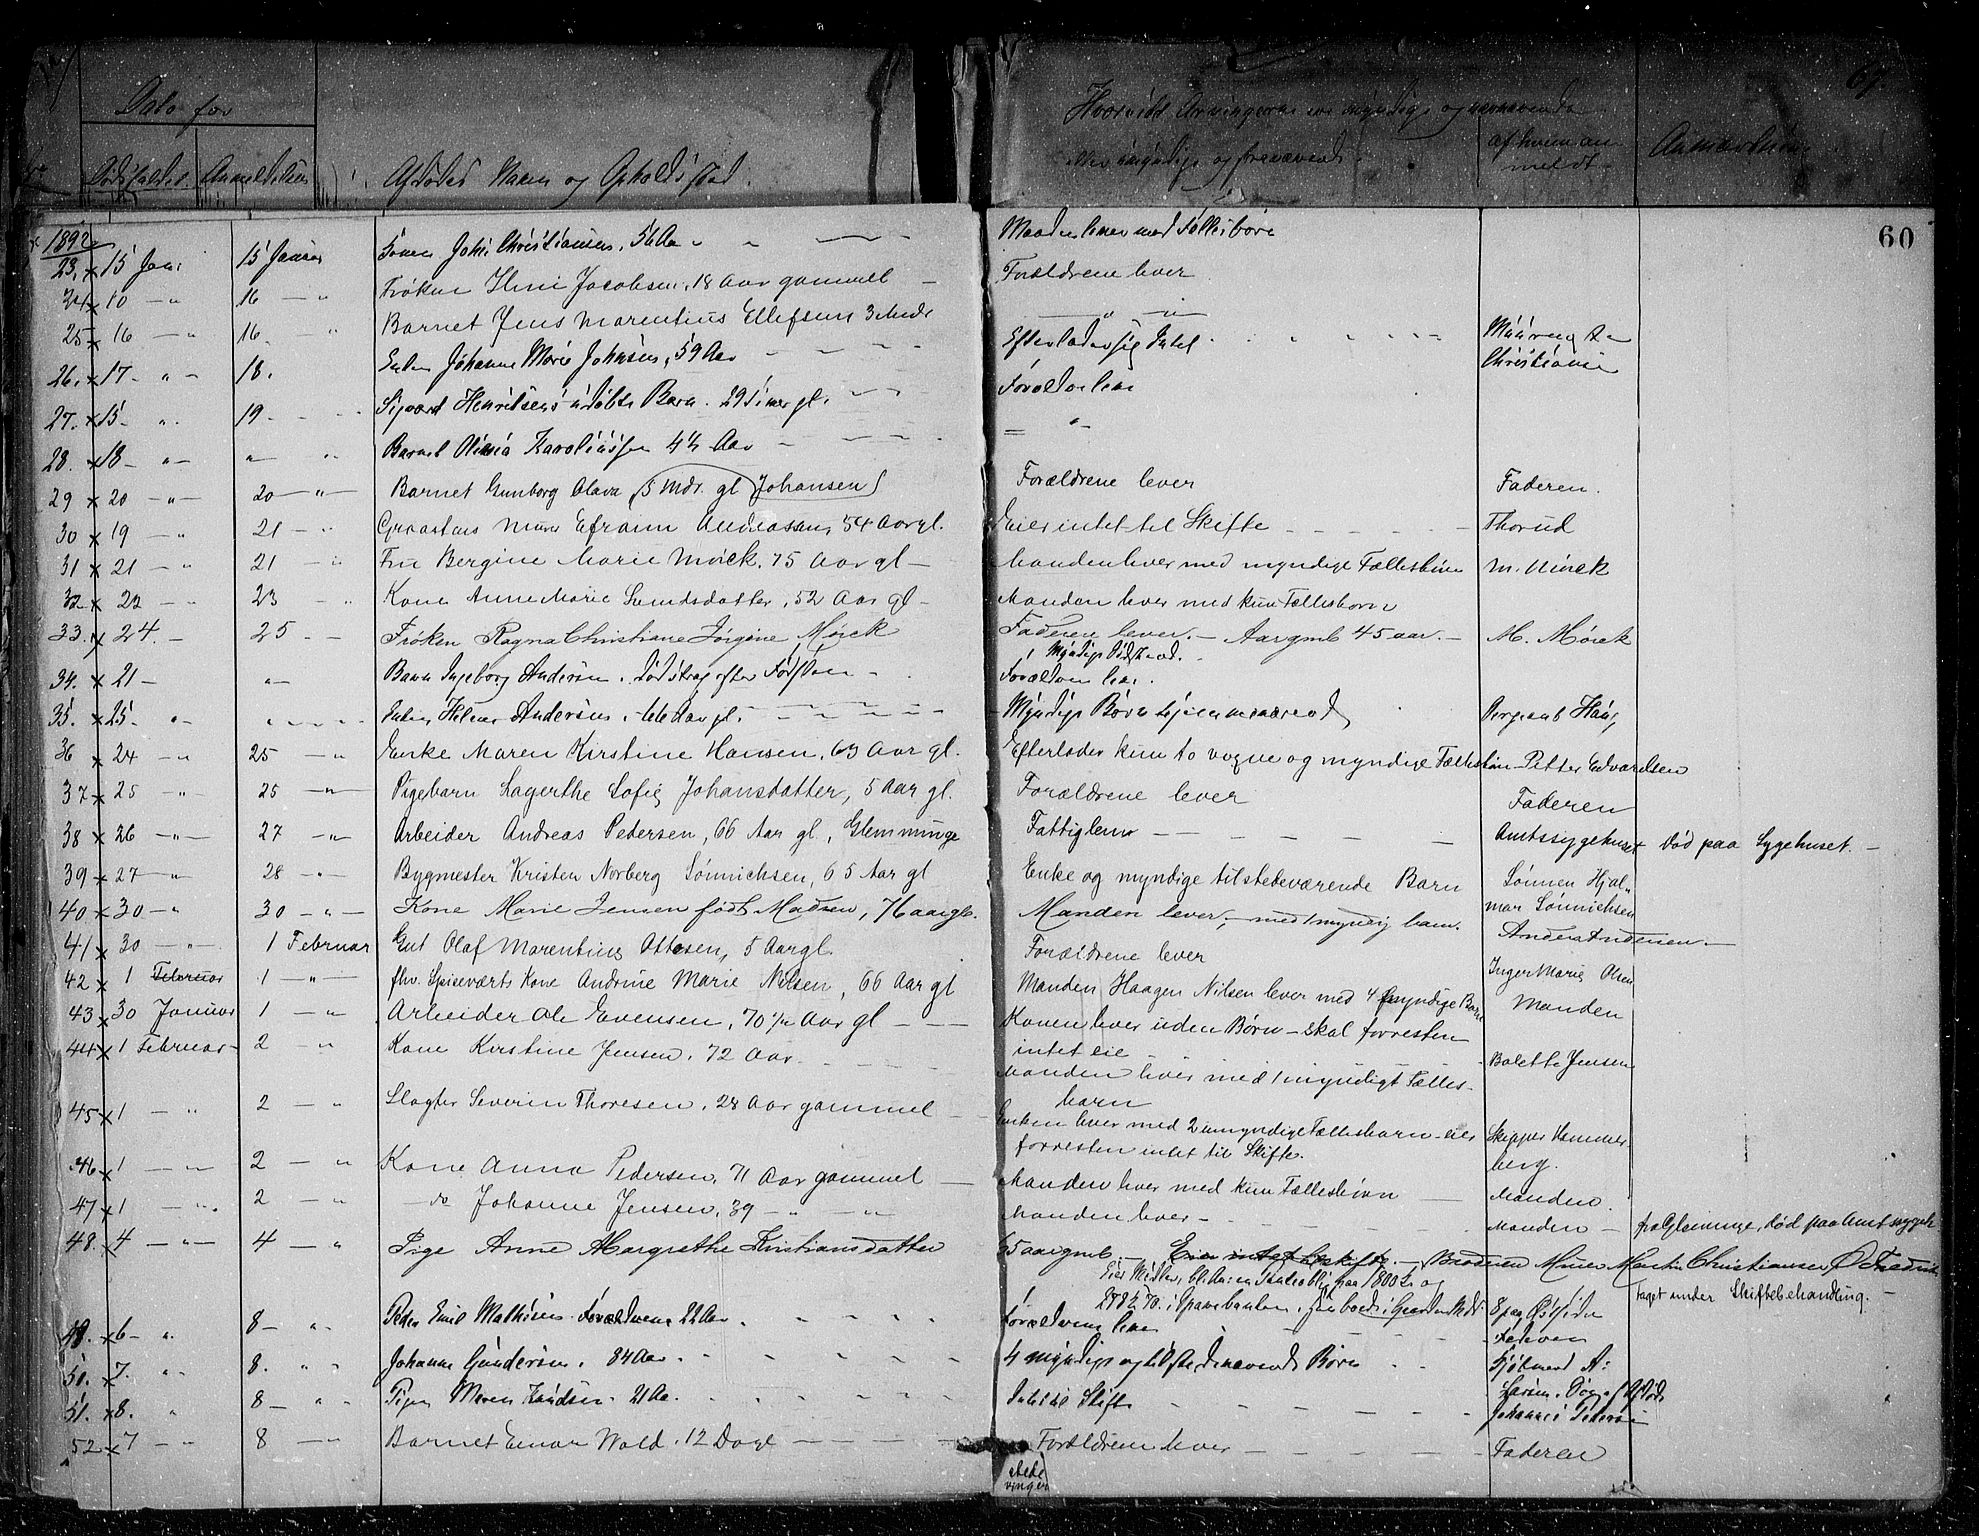 Dato for
Dødsfaldet Anmeldelsen Afdødes Navn og Opholdssted. Hvorvidt Arvingerne ere myndige og nærværende eller umyndige og fraværende. af hvem anmeldt Anmærkning
60
1892
23. x 15 Jan: 15 Januar Johs Christiansen, 56 Aar Manden lever med Fællesbørn
24 x 10 — " 16 — " Frøken Jacobsen, 18 Aar gammel — Forældrene lever
25 x 16 — " 16. " Barnet Jens Marentius Ellefsen 3 Mdr — " —
26. x 17 - " - 18. Enken Johanne Marie Johnsen, 59 Aar Efterlader sig Intet Christiansen
27. x 15 - " 19 - Sigvard Henriksens udøbte Barn. 29 Timer gl. Forældre lever
28. x 18 - " - " Barnet Karoliussen 4½ Aar = " -
29 x 20 — " — 20 — " — Barnet Gunborg Olava (5 Mdr. gl Johansen) Forældrene lever Faderen.
30 x 19 — " 21 - " Efraim Andreasen, 54 Aar gl. Eier intet til Skifte — Thorud
31 x 21 — " 21 — " Fru Bergine Marie Mørck, 75 Aar gl — Manden lever med myndige Fællesbørn M. Mørck
32 x 22 — " 23 — " Kone Anne Marie Lundsdatter, 52 Aar gl — Manden lever med kun Fællesbørn
33. x 24. — 25 - - Frøken Ragna Christiane Jørgine Mørck Faderen lever. — Aar gml 45 aar. — M. Mørck
Myndige
34. x 21 — " — Barn Ingeborg Andersen. Død strax efter Fødslen — Forældre lever.
35. x 25. " - " Enken Helene Andersen, 66 Aar gl. Myndige Børn hjemmeværende
36 x 24 — " 25 — " Enke Maren Kirstine Hansen, 69 Aar gl. Efterlader kun to voxne og myndige Fællesbørn Petter Edvardsen
37 x 25 " 25 — " Pigebarn Lagerthe Sofie Johansdatter, 5 Aar gl. Forældrene lever Faderen
38 x 26 — " — 27 — " Arbeider Andreas Petersen, 66 Aar gl, Glemminge Fattiglem — Amtssygehuset Død paa Sygehuset. —
39 x 27 — " 28 - " Bygmester Kristen Norberg Sønnichsen, 65 Aar gl Enke og myndige tilstedeværende Barn Sønnen Hjalmar Sønnichsen
40 x 30 — " 30 - " — Kone Marie Jensen født Madsen, 76 aar gl. Manden lever, — med 1 myndig barn. Anders Andersen —
41 x 30 — " — 1 Februar Gut Olaf Marentius Ottesen, 5 Aar gl. Forældrene lever Inger Marie Olsen
42 x 1 Februar 1 — " fhv. Spiseværts Kone Andrine Marie Nilsen, 66 Aar gl Manden Haagen Nilsen lever med 4 myndige Børn Manden
43 x 30 Januar 1 — " Arbeider Ole Evensen, 70 ½ Aar gl — Konen lever uden Børn — skal forresten
intet eie
44 x 1 Februar 2 " Kone Kirstine Jensen, 72 Aar. Manden lever med 1 myndigt Fælles- Bolette Jensen
barn
45 x 1 — " 2 — " Slagter Severin Thoresen, 28 Aar gammel — Enken lever med 2 umyndige Fællesbarn — eier Skipper Hammer-
forresten intet til Skifte. berg.
46 x 1 — " 2 — " Kone Anna Pedersen, 71 Aar gammel — Manden lever med kun Fællesbørn — Manden.
47 x 1 — " 2 — " — do Johanne Jensen, 39 — " — " Manden lever — Manden — fra Glemminge, død paa Amtssygeh
48. x 4 — " — 4 — " Pige Anne Margrethe Kristiansdatter 65 aar gml. — Eier intet til skifte. — Broderen Murer Martin Christiansen
paa 1800 Kr og
i Sparebanken, taget under Skiftebehandling. —
49. x 6 - " 8 — " Peder Emil Mathisen. Forældrene 22 Aar Forældrene lever Faderen
50. x 7. " 8. " Johanne Gundersen. 84 Aar. 4 myndige og tilstedeværende Børn
51. x 8. " 8 — " Pigen Maren Knudsen. 21 Aar. Intet til Skifte Johannes Pedersen
52 x 7 " 8 — " Barnet Einar Wold. 12 Dage — Forældrene lever — Faderen